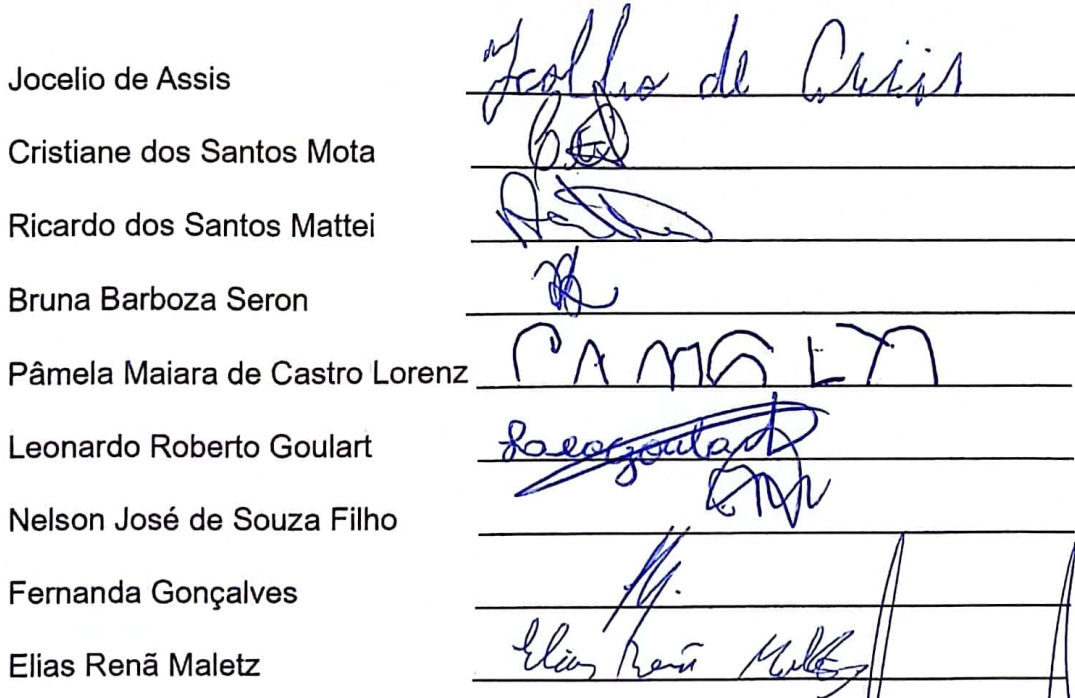 Jocelio de Assis Jocelio de Assis
Cristiane dos Santos Mota
Ricardo dos Santos Mattei
Bruna Barboza Seron
Pâmela Maiara de Castro Lorenz
Leonardo Roberto Goulart
Nelson José de Souza Filho
Fernanda Gonçalves
Elias Renã Maletz Elias Renã Maletz